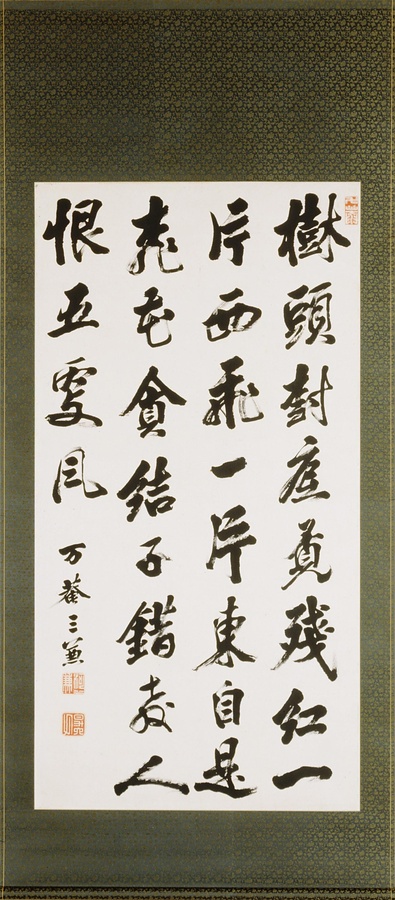 樹頭樹底覓殘紅一
片西飛一片東自是
桃花貪結子錯教人
恨五更風
万菴三兼